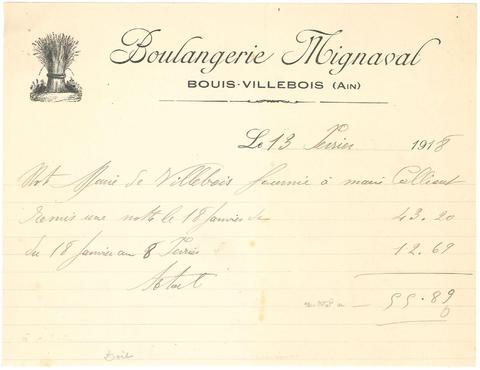 Boulangerie Mignaval
BOUIS-VILLEBOIS (AIN)
Le 13 Fevrier 1918
Mairie de Villebois fournie à marie
remis une notte le 18 Janvier de 43.20
du 18 Janvier au 8 Fevrier 12.69
55.89
0